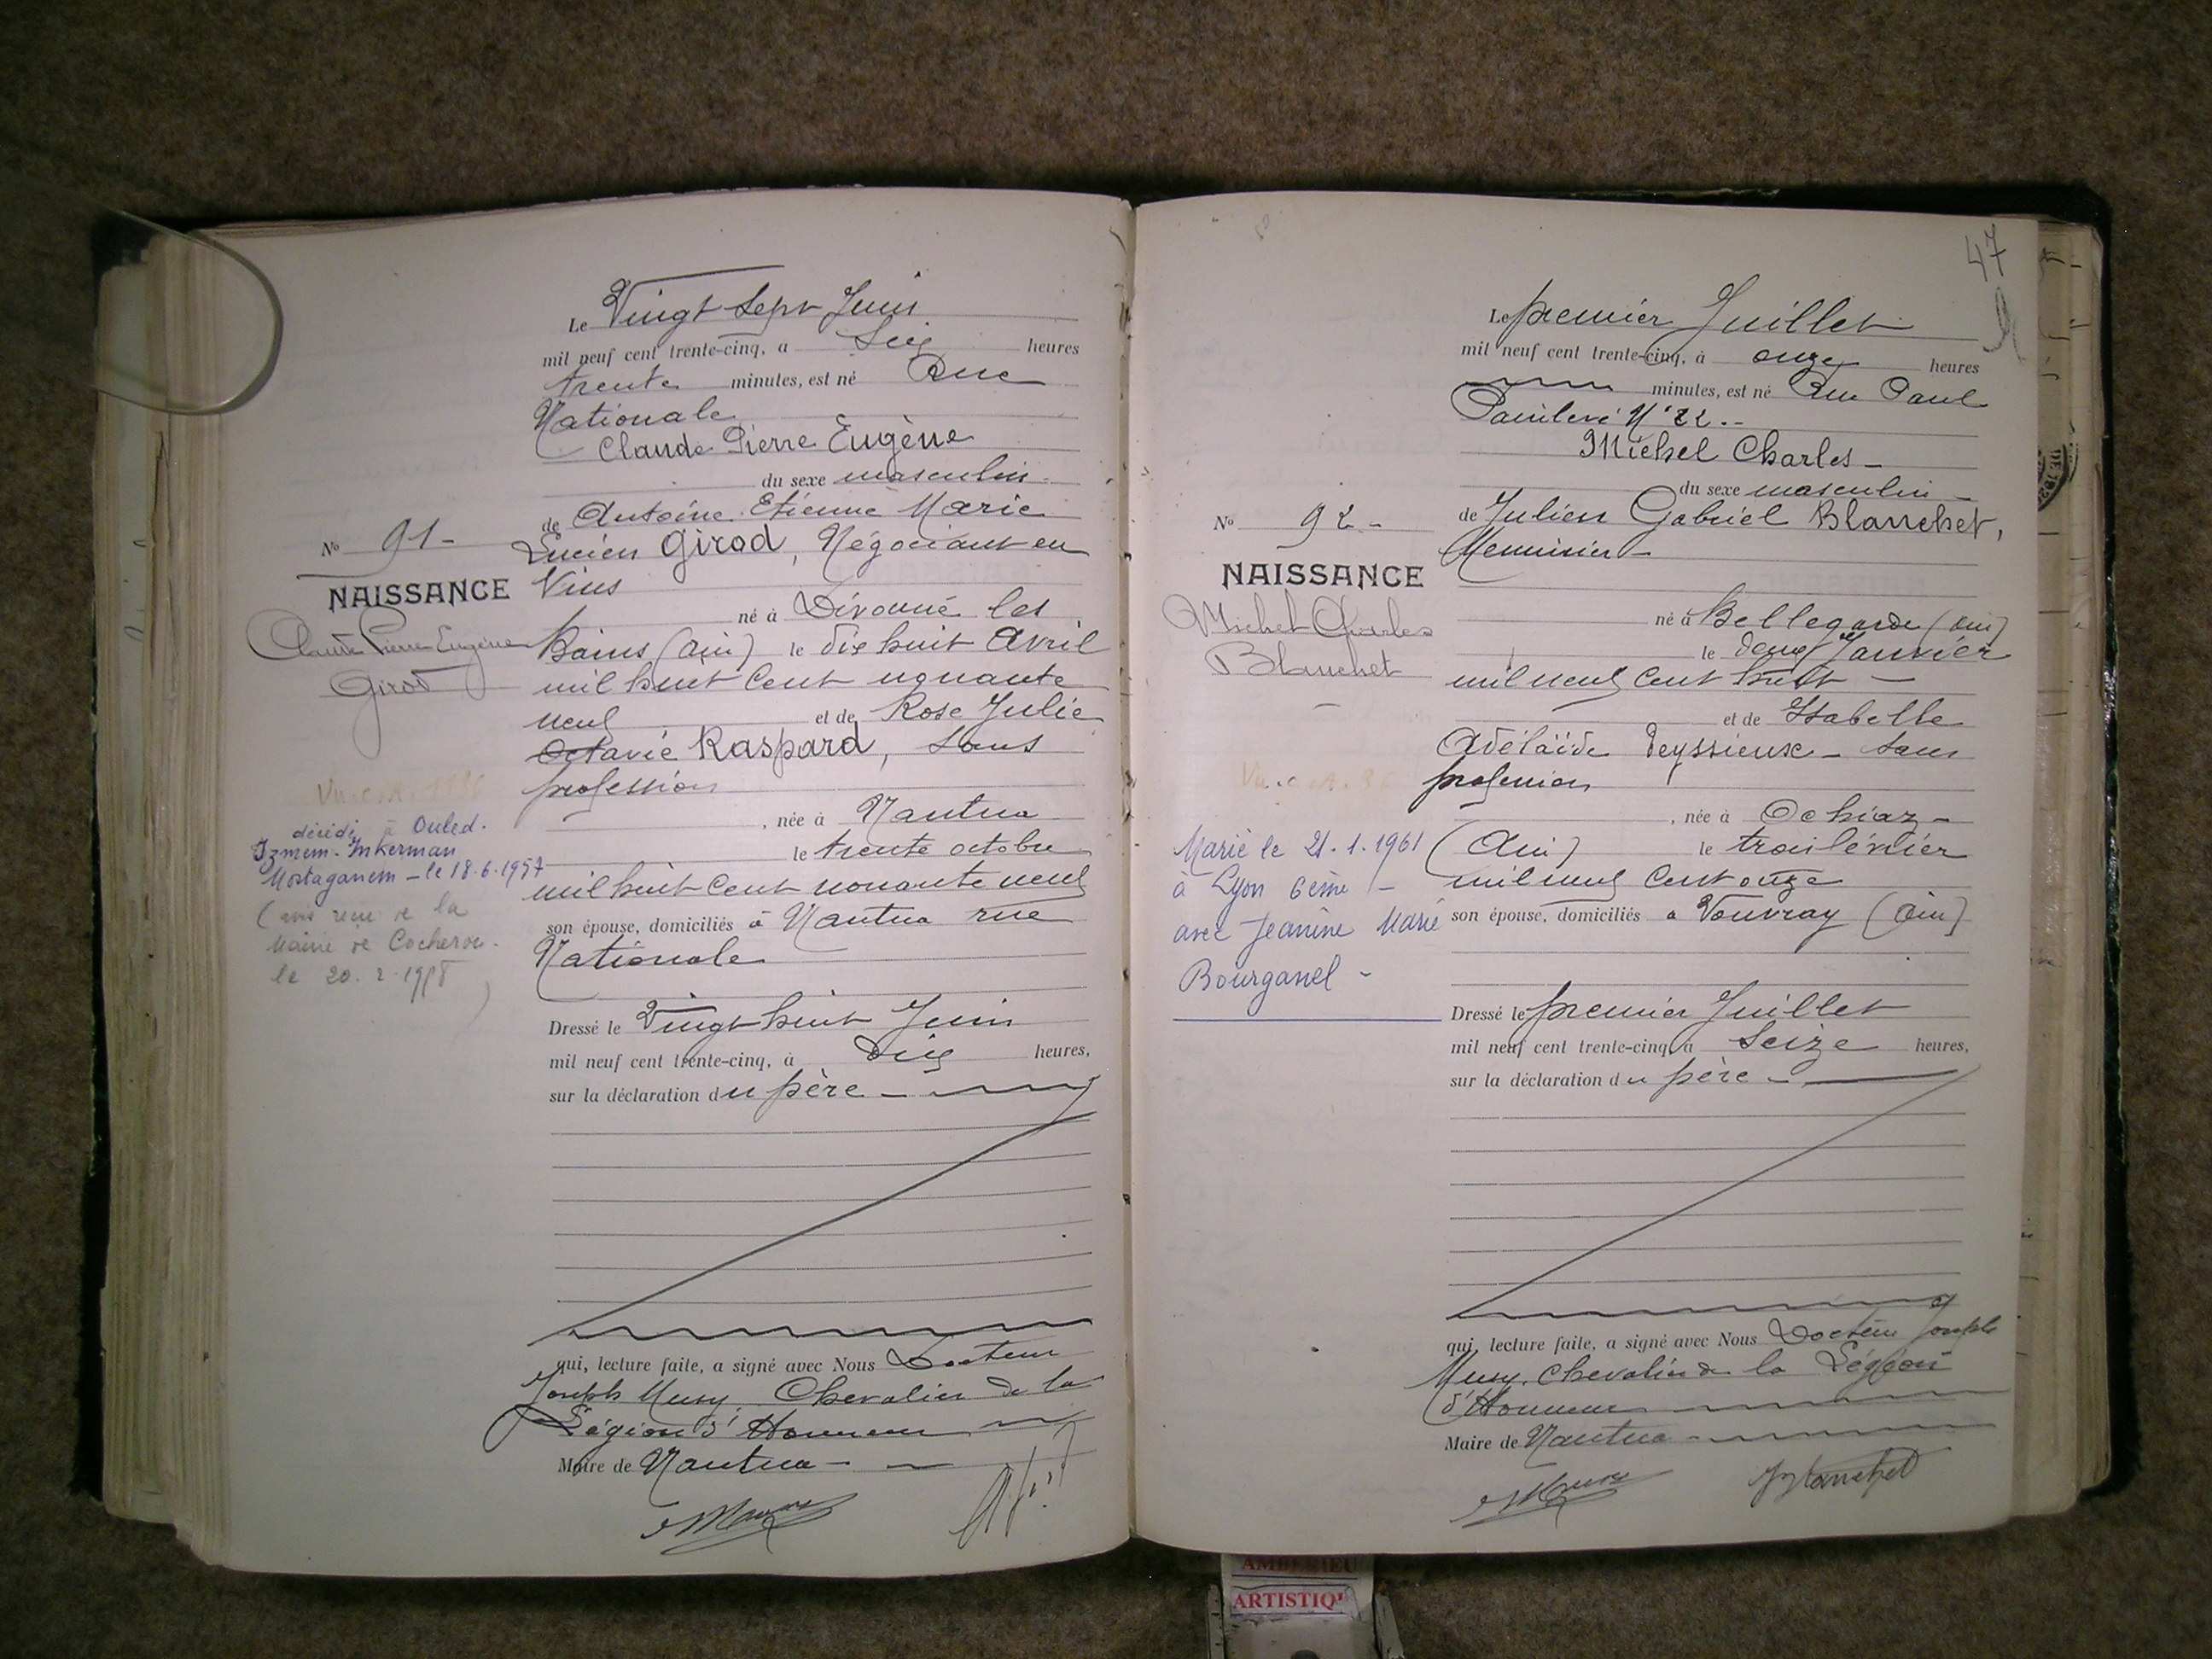 Le Vingt Sept Juin
mil neuf cent trente-cinq, à Six heures
trente minutes, est né Rue
Nationale
Claude Pierre Eugène
du sexe masculin
de Antoine Etienne Marie
Lucien Girod, Négociant en
Vins
né à Divonne les
Bains (Ain) le dix huit Avril
mil huit cent nonante
neuf et de Rose Julie
Octavie Raspard, sans
profession
, née à Nantua
le trente octobre
mil huit cent nonante neuf
son épouse, domiciliés à Nantua rue
Nationale
Dressé le Vingt huit Juin
mil neuf cent trente-cinq, à Dix heures,
sur la déclaration du père
qui, lecture faite, a signé avec Nous Docteur
Joseph Musy, Chevalier de la
Légion d'Honneur
Maire de Nantua
No 91
NAISSANCE
Claude Pierre Eugène
Girod
décédé à Ouled
Izmem-Inkerman
Mostaganem - le 18.6.1957
(avis reçu de la
Mairie de
le 20. 2. 1958)
47
Le premier Juillet
mil neuf cent trente-cinq, à onze heures
minutes, est né Rue Paul
Painlevé N° 22.
Michel Charles
du sexe masculin
de Julien Gabriel Blanchet,
Menuisier
né à Bellegarde (Ain)
le deux Janvier
mil neuf cent huit
et de Isabelle
Adélaïde Deyssieux - sans
profession
, née à Ochiaz
(Ain) le trois février
mil neuf cent onze
son épouse, domiciliés à Vouvray (Ain)
Dressé le premier Juillet
mil neuf cent trente-cinq, à Seize heures,
sur la déclaration du père
qui, lecture faite, a signé avec Nous Docteur Joseph
Musy, Chevalier de la Légion
d'Honneur
Maire de Nantua
JBlanchet
No 92
NAISSANCE
Michel Charles
Blanchet
Marié le 21.1.1961
à Lyon 6ème
avec Jeanine Marie
Bourganel
AMBERIEU
ARTISTIQ